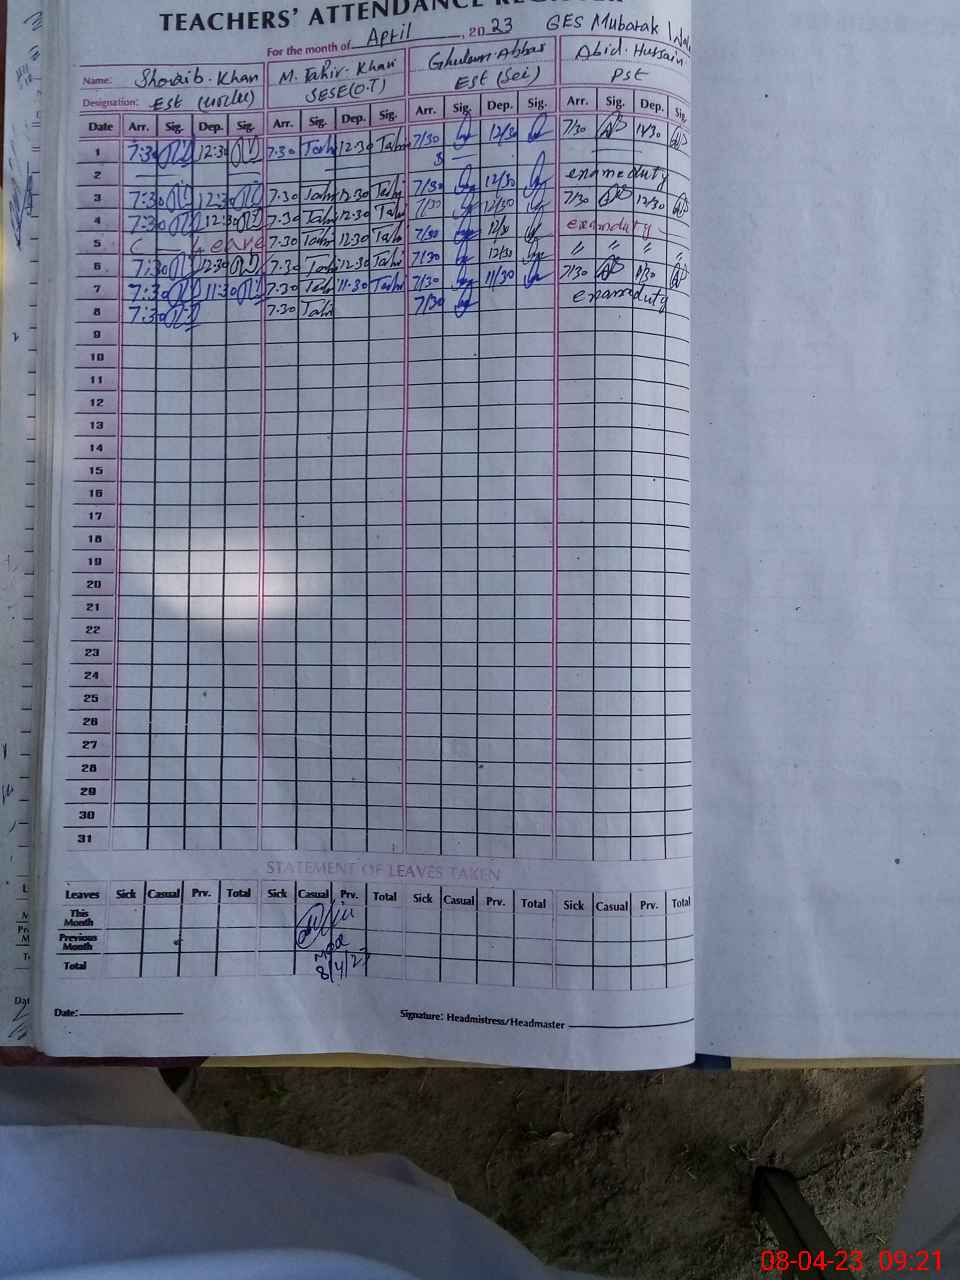 TEACHERS' ATTENDANCE REGISTER
For the month of April, 2023 GES Mubarak
Name: Shoaib Khan M. Tahir Khan Ghulam Abbas Abid Hussain
Designation: Est SESE(O.T) Est (Sci) Pst
Date Arr. Sig. Dep. Sig. Arr. Sig. Dep. Sig. Arr. Sig. Dep. Sig. Arr. Sig. Dep. Sig.
1 7:30 12:30 7.30 Tahir 12.30 Tahir 7/30 12/30 7/30 11/30
2 S
3 7:30 12:30 7.30 Tahir 12.30 Tahir 7/30 12/30 exam duty
4 7:30 12:30 7.30 Tahir 12.30 Tahir 7/30 12/30 7/30 12/30
5 C — Leave 7.30 Tahir 12.30 Tahir 7/30 12/30 exam duty
6 7:30 12:30 7.30 Tahir 12.30 Tahir 7/30 12/30 " " " "
7 7:30 11:30 7.30 Tahir 11.30 Tahir 7/30 11/30 7/30 11/30
8 7:30 7.30 Tahir 7/30 exam duty
9
10
11
12
13
14
15
16
17
18
19
20
21
22
23
24
25
26
27
28
29
30
31
STATEMENT OF LEAVES TAKEN
Leaves Sick Casual Prv. Total Sick Casual Prv. Total Sick Casual Prv. Total Sick Casual Prv. Total
This Month
Previous Month
Total
8/4/23
Date: Signature: Headmistress/Headmaster
08-04-23 09:21